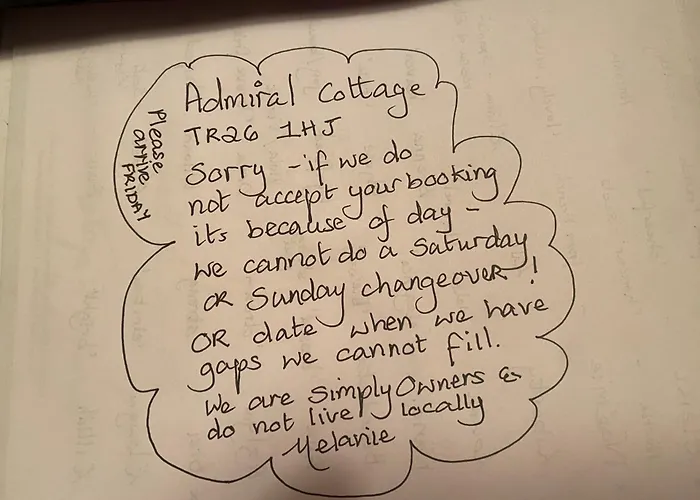 Admiral Cottage
TR26 1HJ
Sorry - if we do
not accept your booking
its because of day -
we cannot do a Saturday
OR Sunday changeover!
OR date when we have
gaps we cannot fill.
We are simply Owners &
do not live locally
Melanie
Please
arrive
FRIDAY